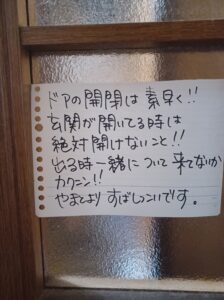 ドアの開閉は素早く!!
玄関が開いてる時は
絶対開けないこと!!
出る時一緒について来てないか
カクニン!!
やまとよりすばしっこいです。